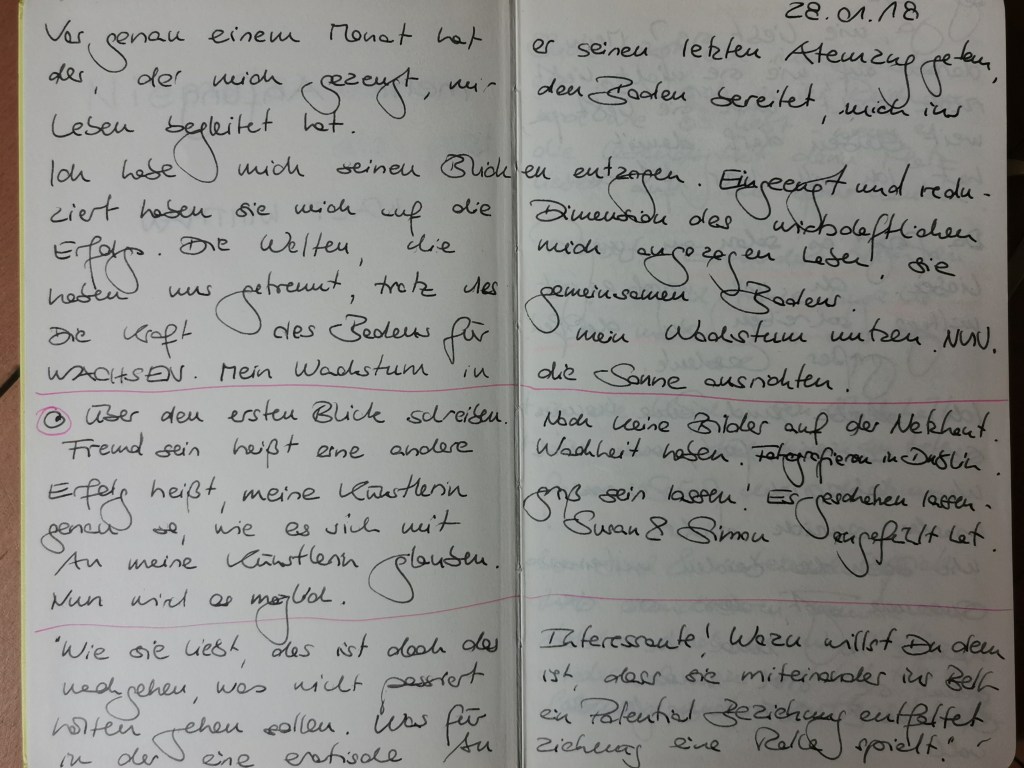 28.01.18
Vor genau einem Monat hat er seinen letzten Atemzug getan,
der, der mich gezeugt, mir den Boden bereitet, mich ins
Leben begleitet hat.
Ich habe mich seinen Blicken entzogen. Eingeengt und redu-
ziert haben sie mich auf die Dimension des wirtschaftlichen
Erfolgs. Die Welten, die mich angezogen haben, sie
haben uns getrennt, trotz des gemeinsamen Bodens.
Die Kraft des Bodens für mein Wachstum nutzen. NUN.
WACHSEN. Mein Wachstum in die Sonne ausrichten.
Über den ersten Blick schreiben. Noch keine Bilder auf der Netzhaut.
Fremd sein heißt eine andere Wachheit haben. Fotografieren in Dublin.
Erfolg heißt, meine Künstlerin groß sein lassen! Es geschehen lassen -
genau so, wie es sich mit Susan & Simon angefühlt hat.
An meine Künstlerin glauben.
Nun wird es möglich.
"Wie sie liebt, das ist doch das Interessante! Wozu willst Du dem
nachgehen, was nicht passiert ist, dass sie miteinander ins Bett
hätten gehen sollen. Was für ein Potential Beziehung entfaltet
in der eine erotische An ziehung eine Rolle spielt." -